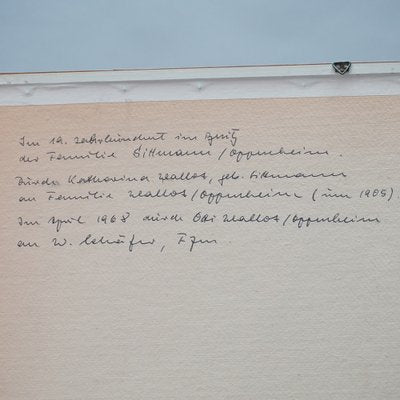 Im 19. Jahrhundert im Besitz
der Familie Dittmann/Oppenheim.
Durch Katharina Wallot, geb. Dittmann
an Familie Wallot/Oppenheim (um 1905).
Im April 1968 durch Wallot/Oppenheim
an W. Schäfer, Ffm.